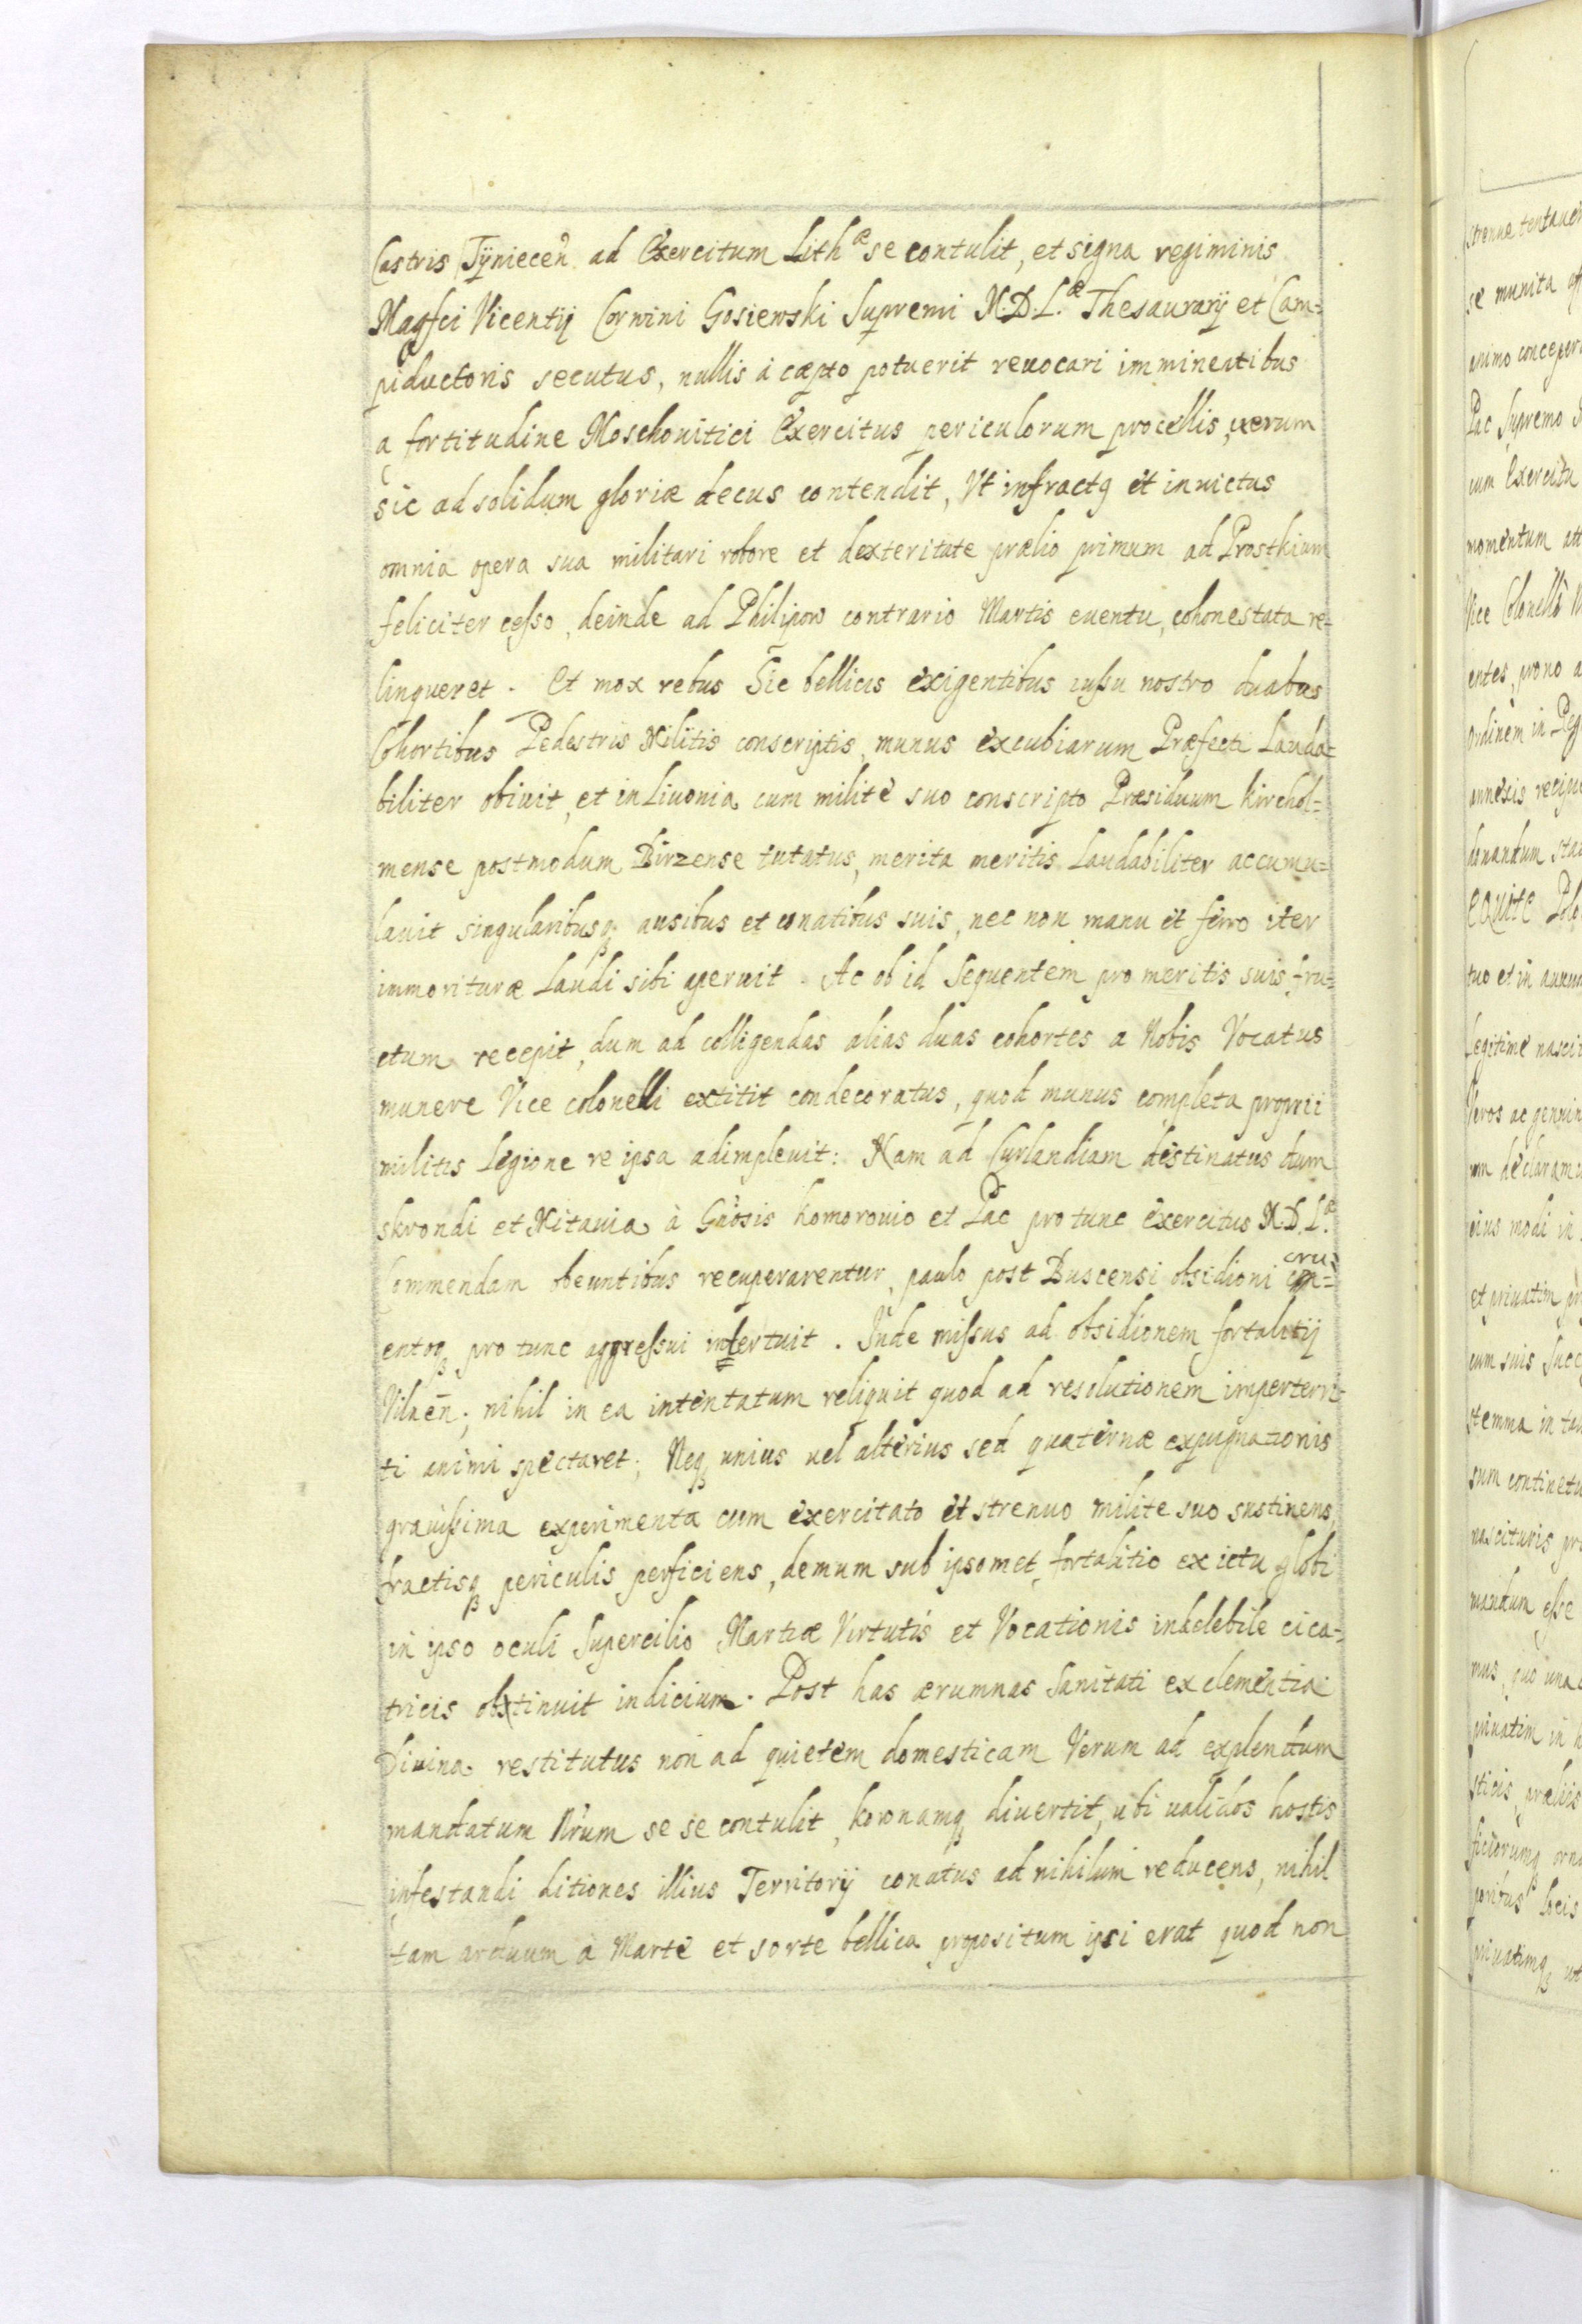 Castris Tÿniecen̄ ad Exercitum Lithæ se contulit, et signa regiminis
Magfci Vicentij Corwini Gosiewski Supremi M.D.L.æ Thesaurarij et Cam=
piductoris secutus, nullis à cæpto potuerit reuocari imminentibus
a fortitudine Moschouitici Exercitus periculorum procellis, uerum
sic ad solidum gloriæ decus contendit, Vt infractq et inuictus
omnia opera sua militari robore et dexteritate prælio primum ad Prostkium
feliciter cesso, deinde ad Philipow contrario Martis euentu, cohonestata re=
linqueret. Et mox rebus Sic bellicis exigentibus iussu nostro duabus
Cohortibus Pedestris Militis conscriptis, munus excubiarum Præfecti Lauda=
biliter obiuit, et in Liuonia cum milite suo conscripto Præsidium kirchol=
mense postmodum Birzense tutatus, merita meritis Laudabiliter accumu=
lauit singularibusq; ausibus et conatibus suis, nec non manu et ferro iter
immorituræ Laudi sibi aperuit. Ac ob id Sequentem pro meritis suis fru=
ctum recepit, dum ad colligendas alias duas cohortes a Nobis Vocatus
munere Vice colonelli extitit condecoratus, quod munus completa proprii
militis Legione re ipsa adimpleuit: Nam ad Curlandiam destinatus dum
skrondi et Mitauia à Gn̄osis komorouio et Pac pro tunc exercitus M.D.L.æ
Commendam obeuntibus recuperarentur, paulo post Buscensi obsidioni cru=
entoq; pro tunc aggressui intertuit. Inde missus ad obsidionem fortalitij
Vilnen̄; nihil in ea intentatum reliquit quod ad resolutionem imperterri=
ti animi spectaret; Neq; unius uel alterius sed quaternæ expugnationis
grauissima experimenta cum exercitato et strenuo milite suo sustinens,
fractisq; periculis perficiens, demum sub ipsomet fortalitio ex ictu globi
in ipso oculi Supercilio Martiæ Virtutis et Vocationis indelebile cica=
tricis obtinuit indicium. Post has ærumnas Sanitati ex clementia
Diuina restitutus non ad quietem domesticam Verum ad explendum
mandatum Nrum se se contulit, koronamq; diuertit, ubi ualidos hostis
infestandi ditiones illius Territorij conatus ad nihilum reducens, nihil
tam arduum à Marte et sorte bellica propositum ipsi erat quod non